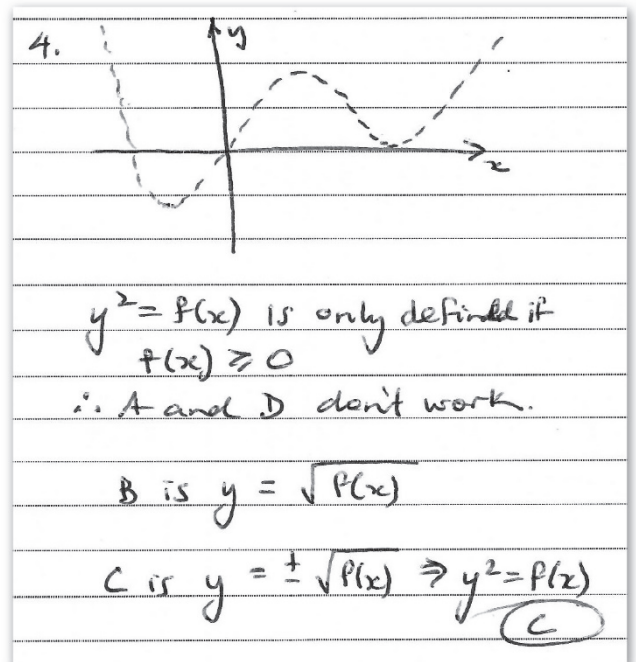 4.
y
x
y² = f(x) is only defined if
f(x) ⩾ 0
∴ A and D don't work.
B is y = √f(x)
C is y = ± √f(x) ⇒ y² = f(x)
C